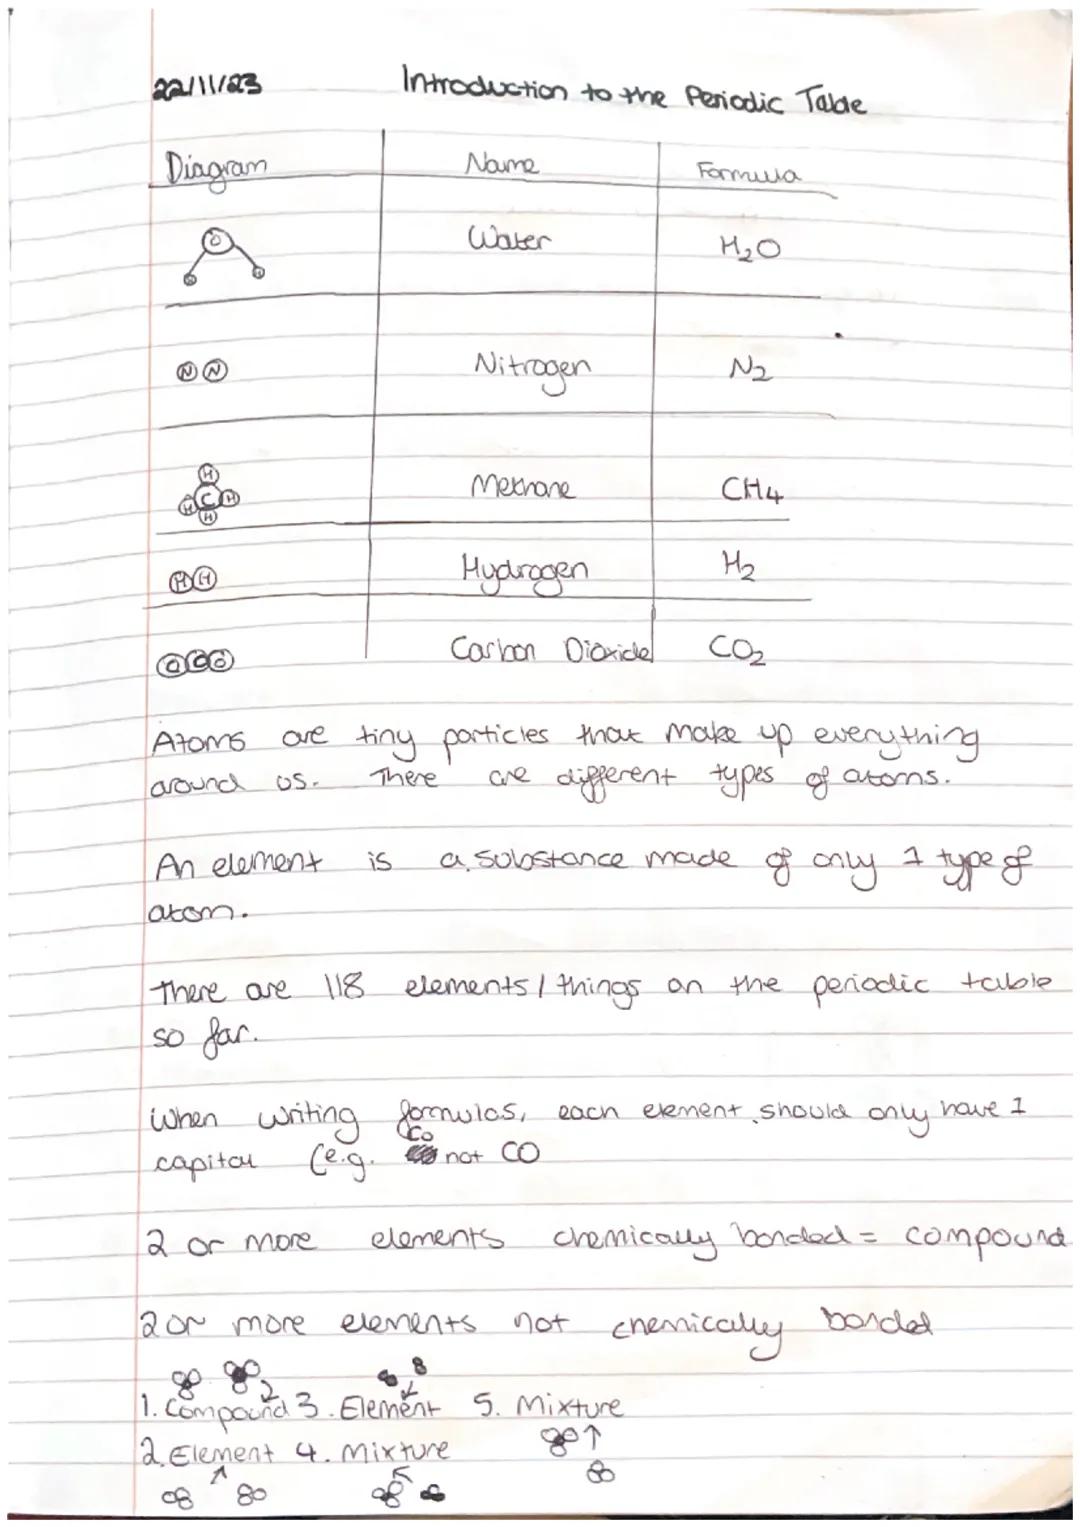 22/11/23 Introduction to the Periodic Table
Diagram Name Formula
O Water H₂O
H H
N N Nitrogen N₂
H
H C H Methane CH4
H
H H Hydrogen H₂
O C O Carbon Dioxide CO₂
Atoms are tiny particles that make up everything
around us. There are different types of atoms.
An element is a substance made of only 1 type of
atom.
There are 118 elements / things on the periodic table
so far.
When writing formulas, each element should only have 1
Co
capital (e.g. not CO
2 or more elements chemically bonded = compound
2 or more elements not chemically bonded
1. Compound 3. Element 5. Mixture
2. Element 4. Mixture